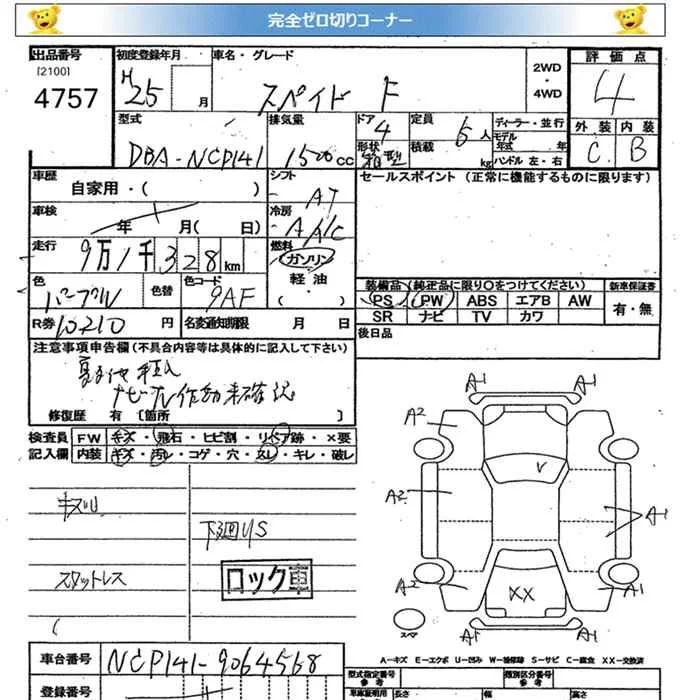 完全ゼロ切りコーナー
出品番号
[2100]
4757
初度登録年月
H25 月
車名・グレード
スペイド F
2WD
・
4WD
評価点
4
型式
DBA-NCP141
排気量
1500cc
ドア
4
形状
箱型
定員
5人
積載
kg
ディーラー・並行
モデル
年式 年
ハンドル 左・右
外装 内装
C B
車歴
自家用・( )
シフト
AT
セールスポイント (正常に機能するものに限ります)
車検
年 月( 日)
冷房
AAC
走行
9万1千328km
燃料
ガソリン
・
軽油
色
パープル
色替
色コード
9AF
装備品 (純正品に限り○をつけてください)
新車保証書
PS PW ABS エアB AW
SR ナビ TV カワ
有・無
R券 10210 円
名変通知期限 月 日
後日品
注意事項申告欄 (不具合内容等は具体的に記入して下さい)
ナビTV作動未確認
修復歴 有 [箇所 ]
検査員
記入欄
FW キズ・飛石・ヒビ割・リペア跡・×要
内装 キズ・汚レ・コゲ・穴・スレ・キレ・破レ
キズU
下廻りS
スタットレス
ロック車
A1 A1
A2
V
A2
A1
A2
XX
A1
スペア
A1 A1
A-キズ E-エクボ U-凹み W-補修跡 S-サビ C-腐食 XX-交換済
車台番号
NCP141-9064568
登録番号
型式指定番号
参考
類別区分番号
参考
長さ 幅 高さ